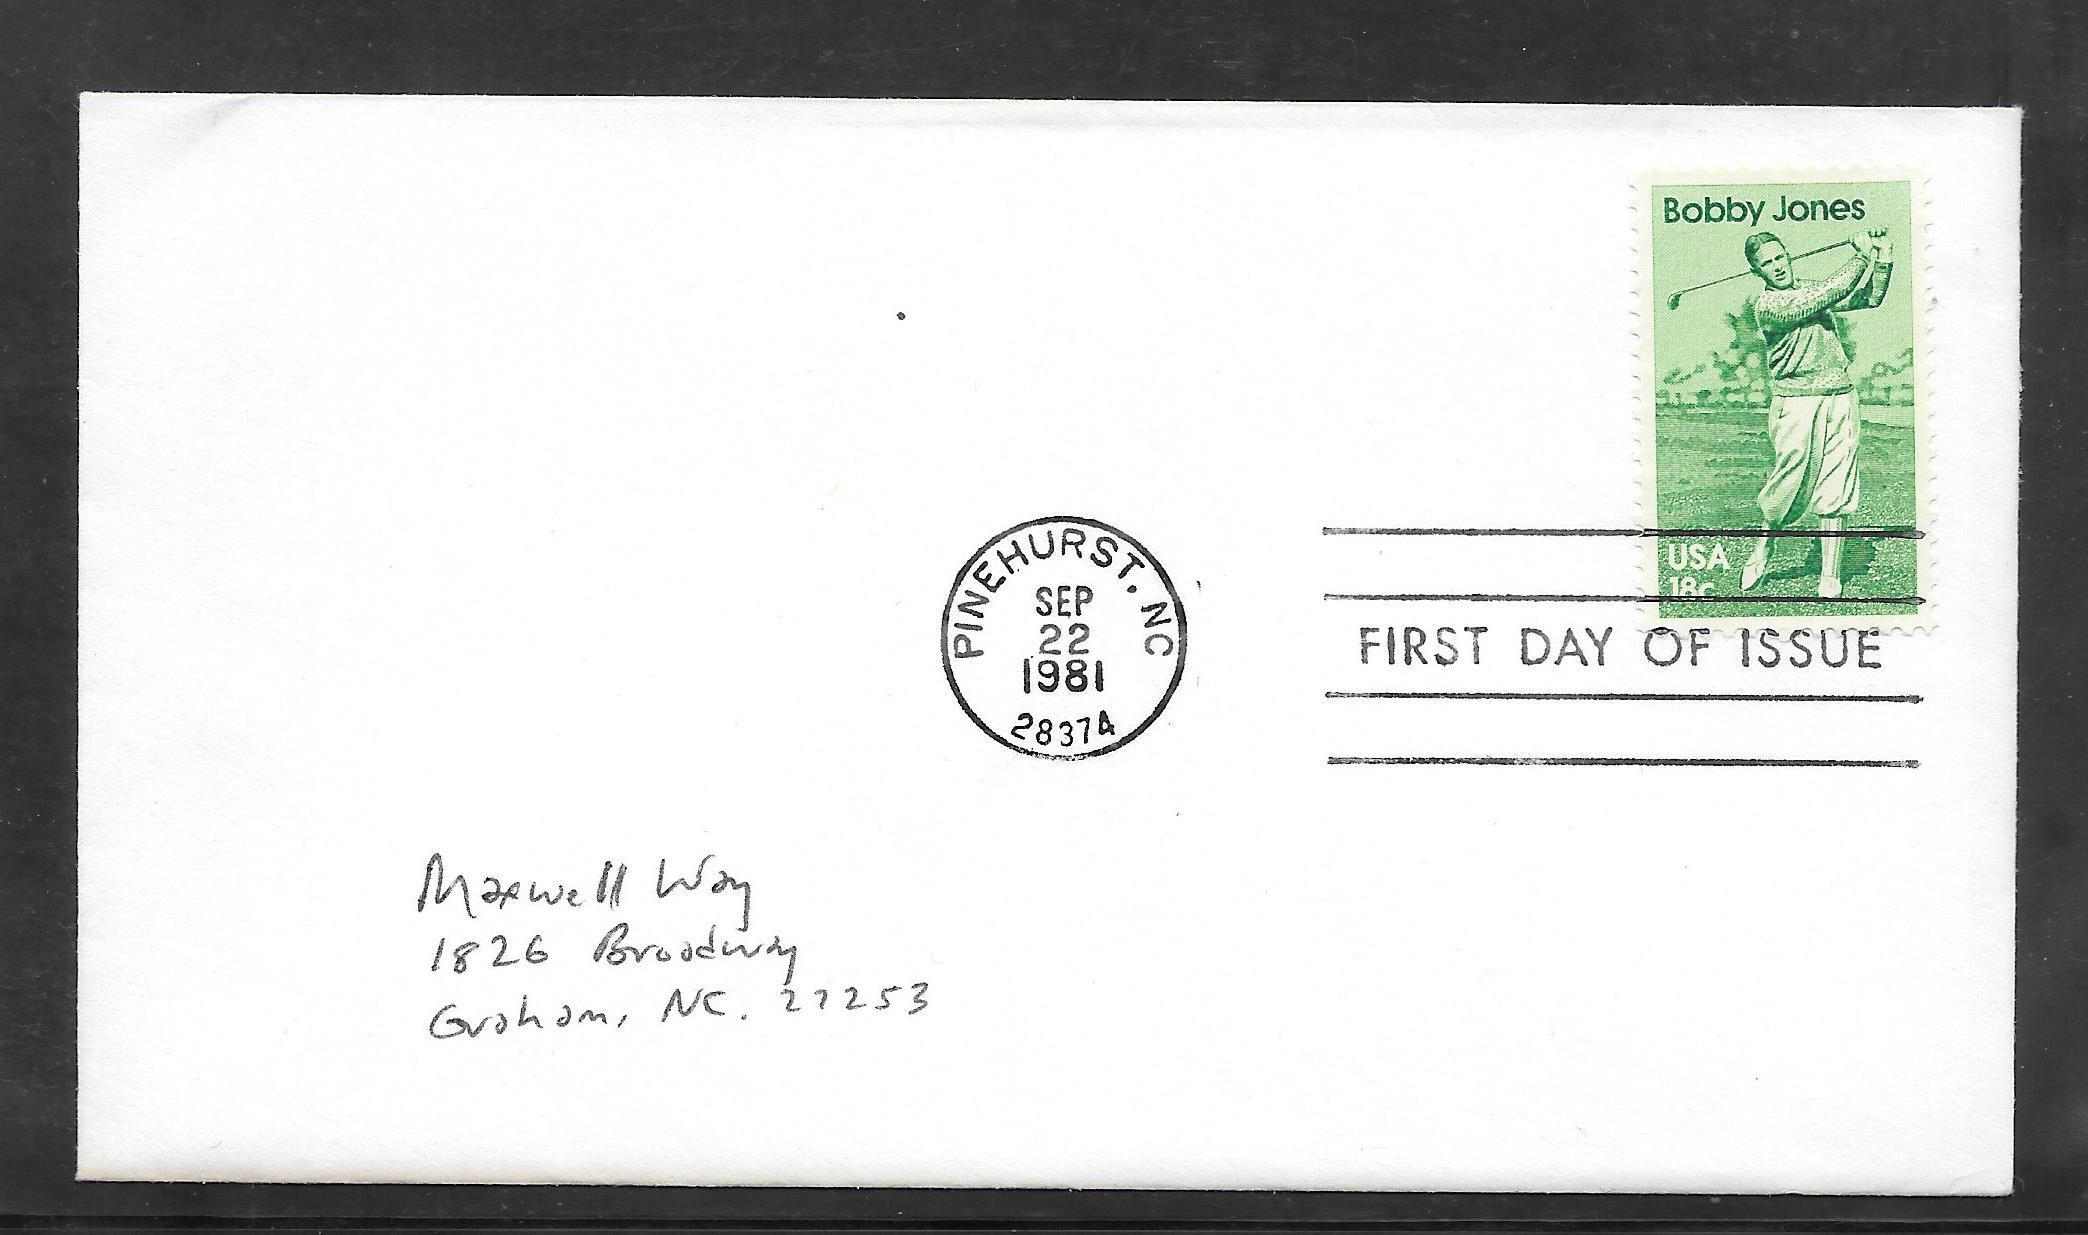 Bobby Jones
USA
18c
PINEHURST, NC
SEP
22
1981
28374
FIRST DAY OF ISSUE
Maxwell Way
1826 Broadway
Graham, NC. 27253